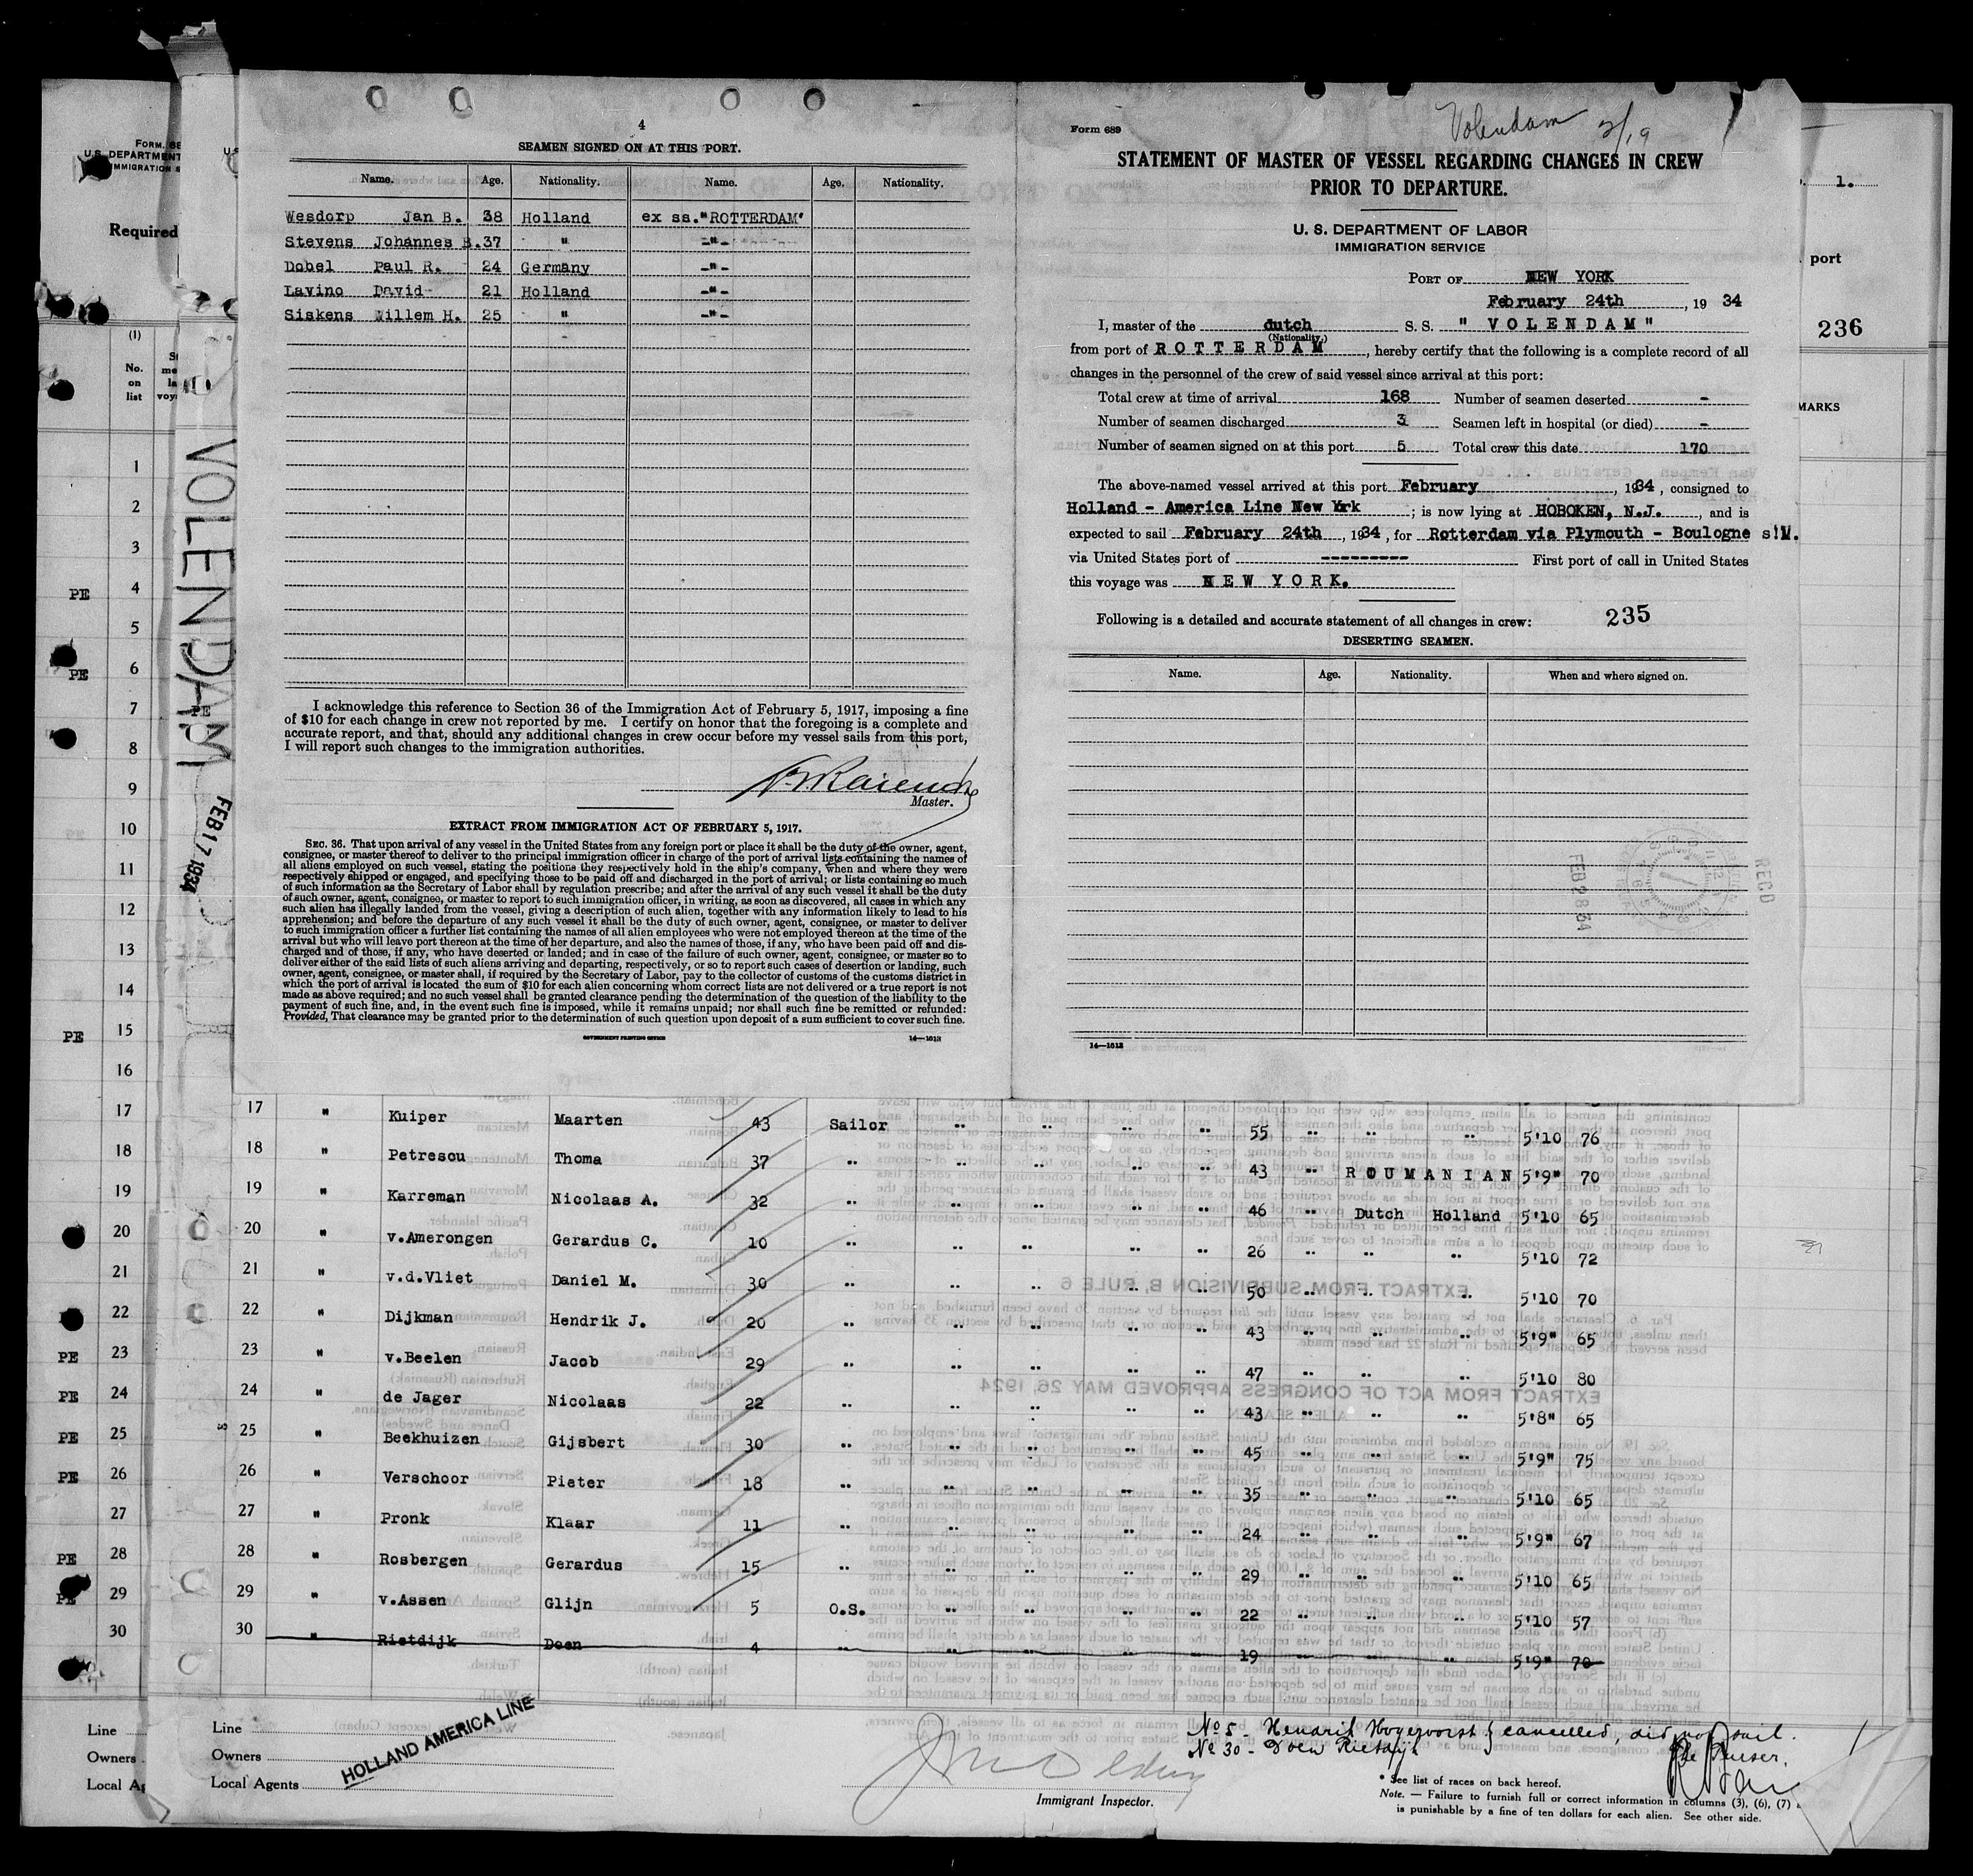 Form 689
Volendam 2/19
STATEMENT OF MASTER OF VESSEL REGARDING CHANGES IN CREW
PRIOR TO DEPARTURE.
U. S. DEPARTMENT OF LABOR
IMMIGRATION SERVICE
PORT OF NEW YORK
February 24th, 19 34
I, master of the dutch S. S. " V O L E N D A M "
(Nationality.)
from port of R O T T E R D A M, hereby certify that the following is a complete record of all
changes in the personnel of the crew of said vessel since arrival at this port:
Total crew at time of arrival 168 Number of seamen deserted -
Number of seamen discharged 3 Seamen left in hospital (or died) -
Number of seamen signed on at this port 5 Total crew this date 170
The above-named vessel arrived at this port February, 1934, consigned to
Holland - America Line New York; is now lying at HOBOKEN, N.J., and is
expected to sail February 24th, 1934, for Rotterdam via Plymouth - Boulogne s!M.
via United States port of --------- First port of call in United States
this voyage was N E W Y O R K.
Following is a detailed and accurate statement of all changes in crew: 235
DESERTING SEAMEN.
Name. Age. Nationality. When and where signed on.
RECD
FEB 28 34
14—1013
4
SEAMEN SIGNED ON AT THIS PORT.
Name. Age. Nationality. Name. Age. Nationality.
Wesdorp Jan B. 38 Holland ex ss."ROTTERDAM"
Stevens Johannes B. 37 " -"-
Dobel Paul R. 24 Germany -"-
Lavino David 21 Holland -"-
Siskens Willem H. 25 " -"-
I acknowledge this reference to Section 36 of the Immigration Act of February 5, 1917, imposing a fine
of $10 for each change in crew not reported by me. I certify on honor that the foregoing is a complete and
accurate report, and that, should any additional changes in crew occur before my vessel sails from this port,
I will report such changes to the immigration authorities.
Master.
EXTRACT FROM IMMIGRATION ACT OF FEBRUARY 5, 1917.
SEC. 36. That upon arrival of any vessel in the United States from any foreign port or place it shall be the duty of the owner, agent,
consignee, or master thereof to deliver to the principal immigration officer in charge of the port of arrival lists containing the names of
all aliens employed on such vessel, stating the positions they respectively hold in the ship's company, when and where they were
respectively shipped or engaged, and specifying those to be paid off and discharged in the port of arrival; or lists containing so much
of such information as the Secretary of Labor shall by regulation prescribe; and after the arrival of any such vessel it shall be the duty
of such owner, agent, consignee, or master to report to such immigration officer, in writing, as soon as discovered, all cases in which any
such alien has illegally landed from the vessel, giving a description of such alien, together with any information likely to lead to his
apprehension; and before the departure of any such vessel it shall be the duty of such owner, agent, consignee, or master to deliver
to such immigration officer a further list containing the names of all alien employees who were not employed thereon at the time of the
arrival but who will leave port thereon at the time of her departure, and also the names of those, if any, who have been paid off and dis-
charged and of those, if any, who have deserted or landed; and in case of the failure of such owner, agent, consignee, or master so to
deliver either of the said lists of such aliens arriving and departing, respectively, or so to report such cases of desertion or landing, such
owner, agent, consignee, or master shall, if required by the Secretary of Labor, pay to the collector of customs of the customs district in
which the port of arrival is located the sum of $10 for each alien concerning whom correct lists are not delivered or a true report is not
made as above required; and no such vessel shall be granted clearance pending the determination of the question of the liability to the
payment of such fine, and, in the event such fine is imposed, while it remains unpaid; nor shall such fine be remitted or refunded:
Provided, That clearance may be granted prior to the determination of such question upon deposit of a sum sufficient to cover such fine.
GOVERNMENT PRINTING OFFICE 14—1013
U.S. DEPARTMENT
IMMIGRATION
Required
(1)
No.
on
list
1
2
3
PE 4
5
PE 6
7 PE
8
9
10
11
12
13
14
PE 15
16
17
18
19
20
21
22
PE 23
PE 24
PE 25
PE 26
27
PE 28
PE 29
30
VOLENDAM
FEB 17 1934
1.
port
236
MARKS
17 " Kuiper Maarten 43 Sailor " " " " 55 " " " 5'10 76
18 " Petrescu Thoma 37 " " " " " 43 " R O U M A N I A N 5'9" 70
19 " Karreman Nicolaas A. 32 " " " " " 46 " Dutch Holland 5'10 65
20 " v.Amerongen Gerardus C. 10 " " " " " 26 " " " 5'10 72
21 " v.d.Vliet Daniel M. 30 " " " " " 50 " " " 5'10 70
22 " Dijkman Hendrik J. 20 " " " " " 43 " " " 5'9" 65
23 " v.Beelen Jacob 29 " " " " " 47 " " " 5'10 80
24 " de Jager Nicolaas 22 " " " " " 43 " " " 5'8" 65
25 " Beekhuizen Gijsbert 30 " " " " " 45 " " " 5'9" 75
26 " Verschoor Pieter 18 " " " " " 35 " " " 5'10 65
27 " Pronk Klaar 11 " " " " " 24 " " " 5'9" 67
28 " Rosbergen Gerardus 15 " " " " " 29 " " " 5'10 65
29 " v.Assen Glijn 5 O.S. " " " " 22 " " " 5'10 57
30 " Rietdijk Doen 4 " " " " " 19 " " " 5'9" 70
Line
Owners
Line
Owners
Local Agents
HOLLAND AMERICA LINE
Immigrant Inspector.
No 5 - Hendrik Hogervorst } cancelled, did not sail.
No 30 - Doen Rietdijk
The Purser.
* See list of races on back hereof.
Note. — Failure to furnish full or correct information in columns (3), (6), (7)
is punishable by a fine of ten dollars for each alien. See other side.